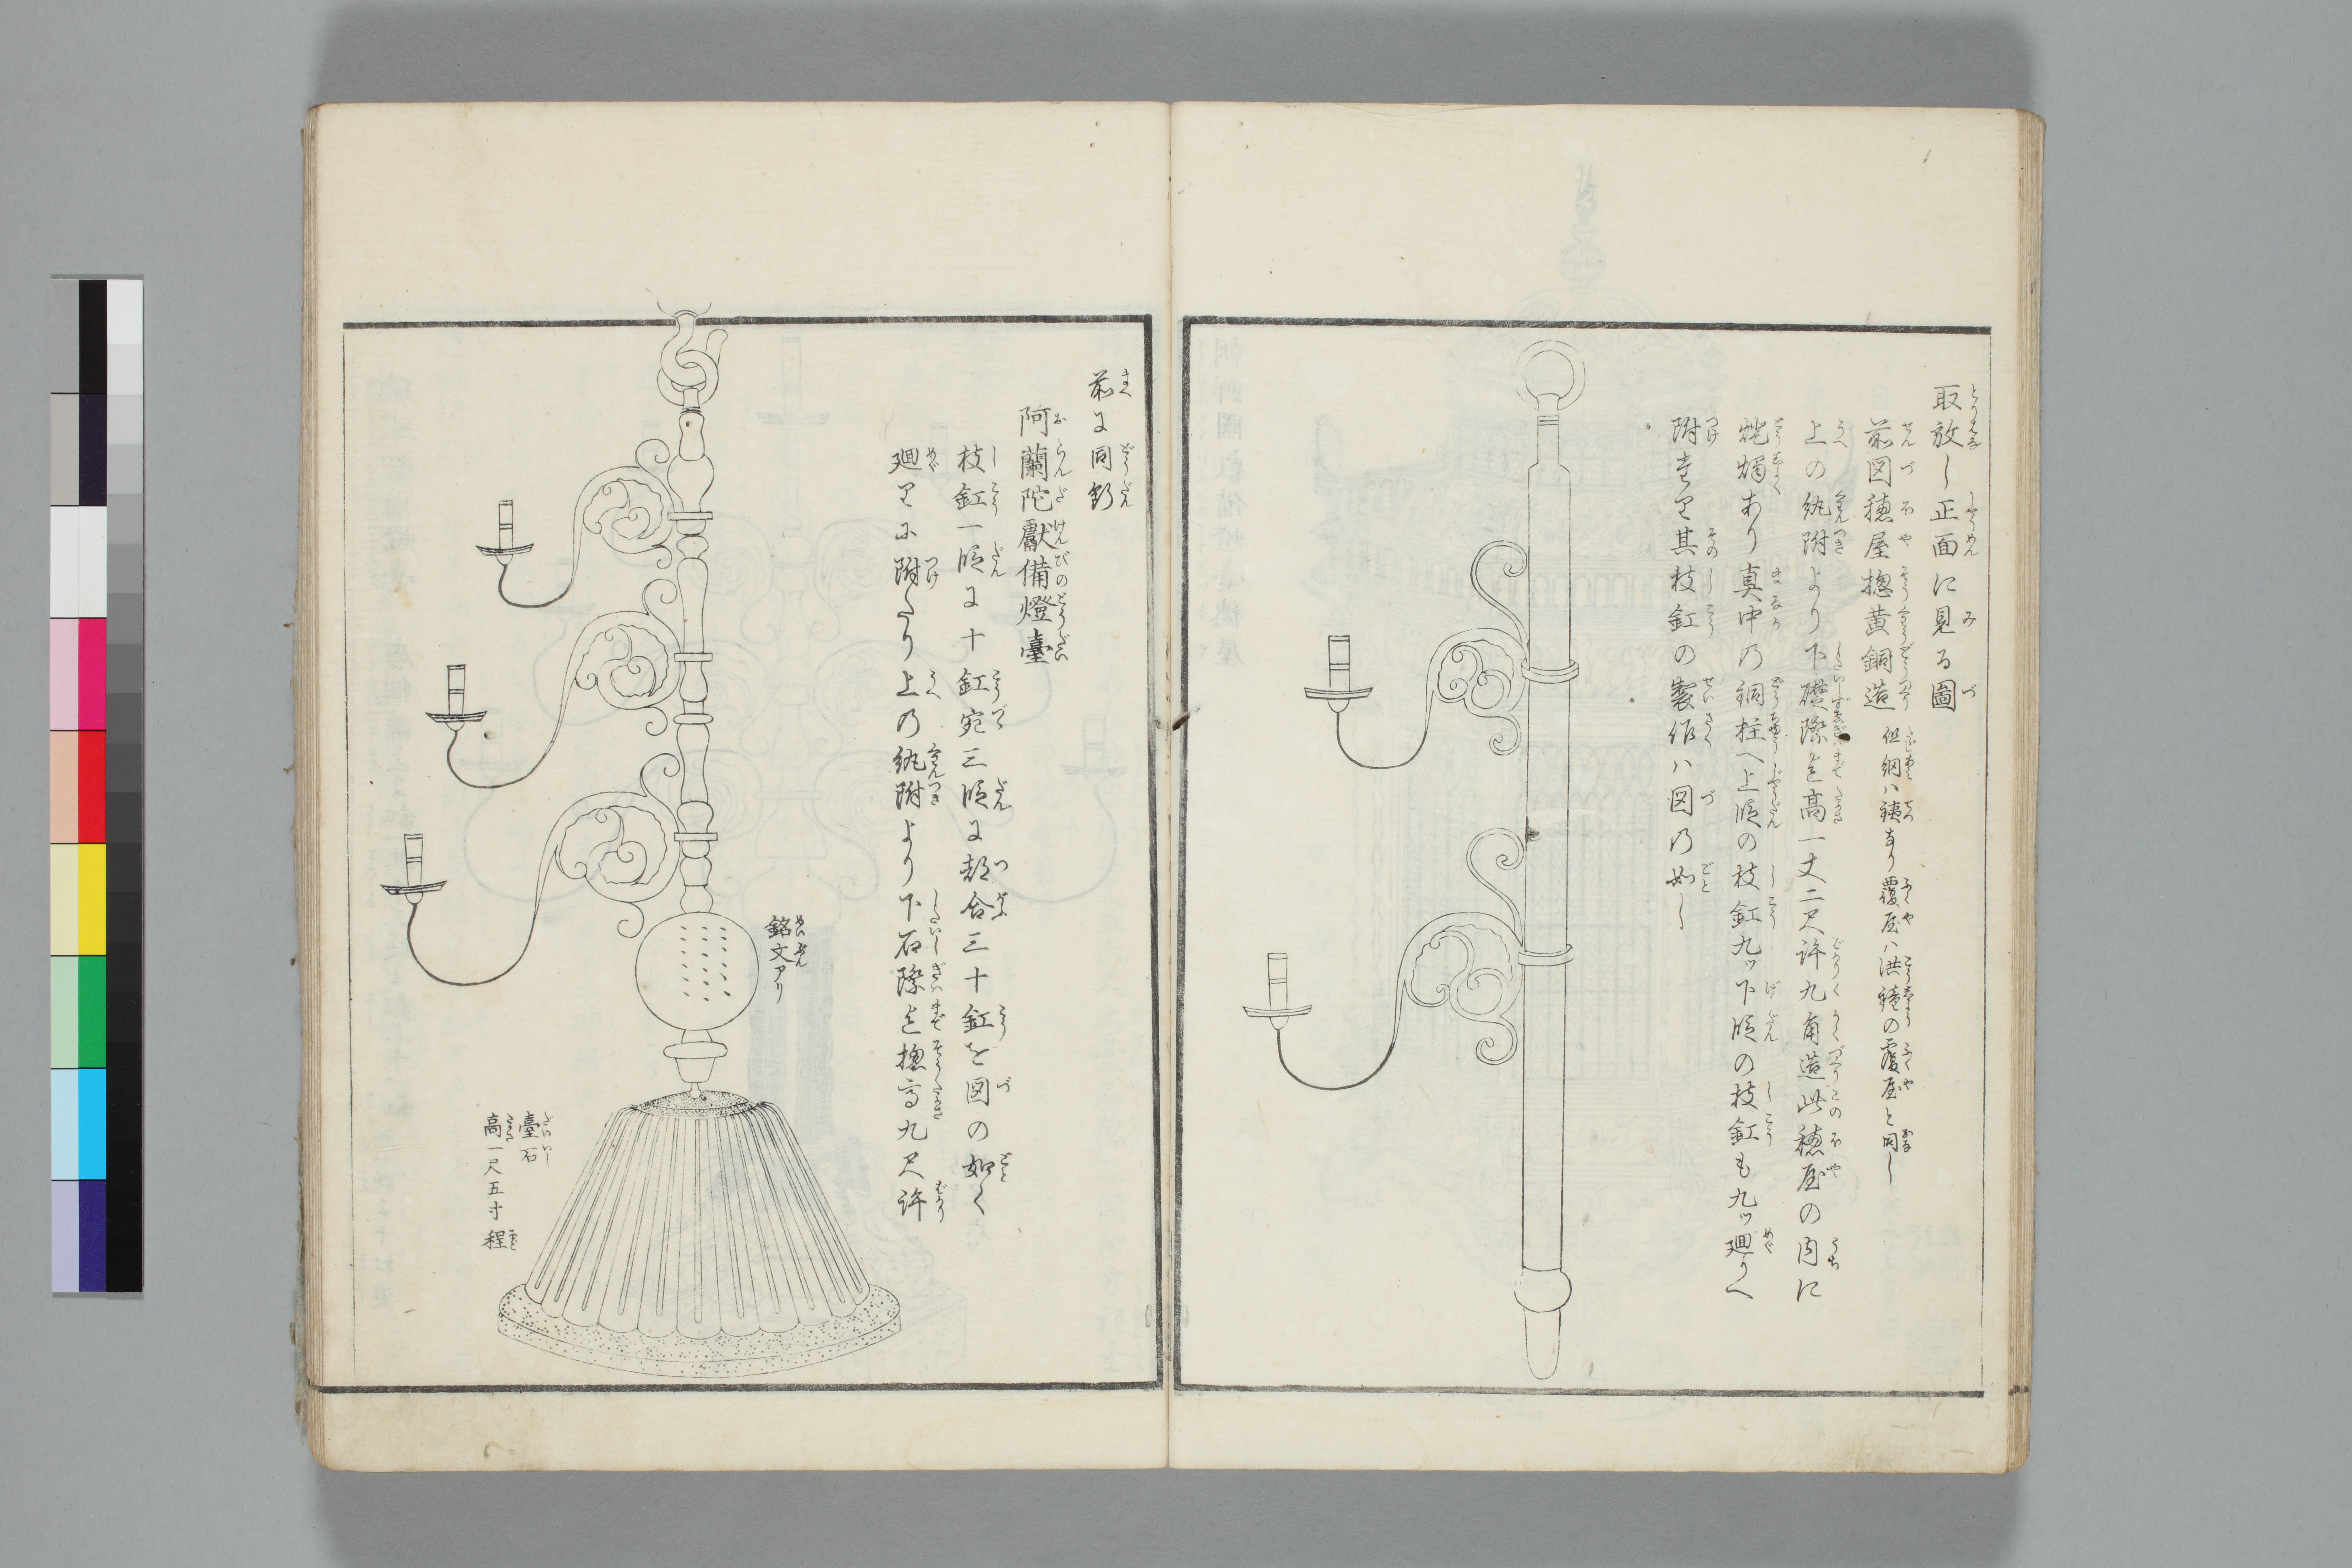 取放し正面に見る圖
前図穂屋揔黄銅造 但綱ハ銕なり覆屋ハ洪鐘の覆屋と同し
上の紈附より下礎際迄高一丈二尺許九角造此穂屋の内に
燈燭あり真中の銅柱へ上段の枝釭九ッ下段の枝釭も九ッ廻りへ
附たり其枝釭の製作ハ図の如し
前に同断
阿蘭陀獻備燈臺
枝釭一段に十釭宛三段に都合三十釭を図の如く
廻りに附たり上の紈附より下石際迄揔高九尺許
銘文アリ
臺石
高一尺五寸程